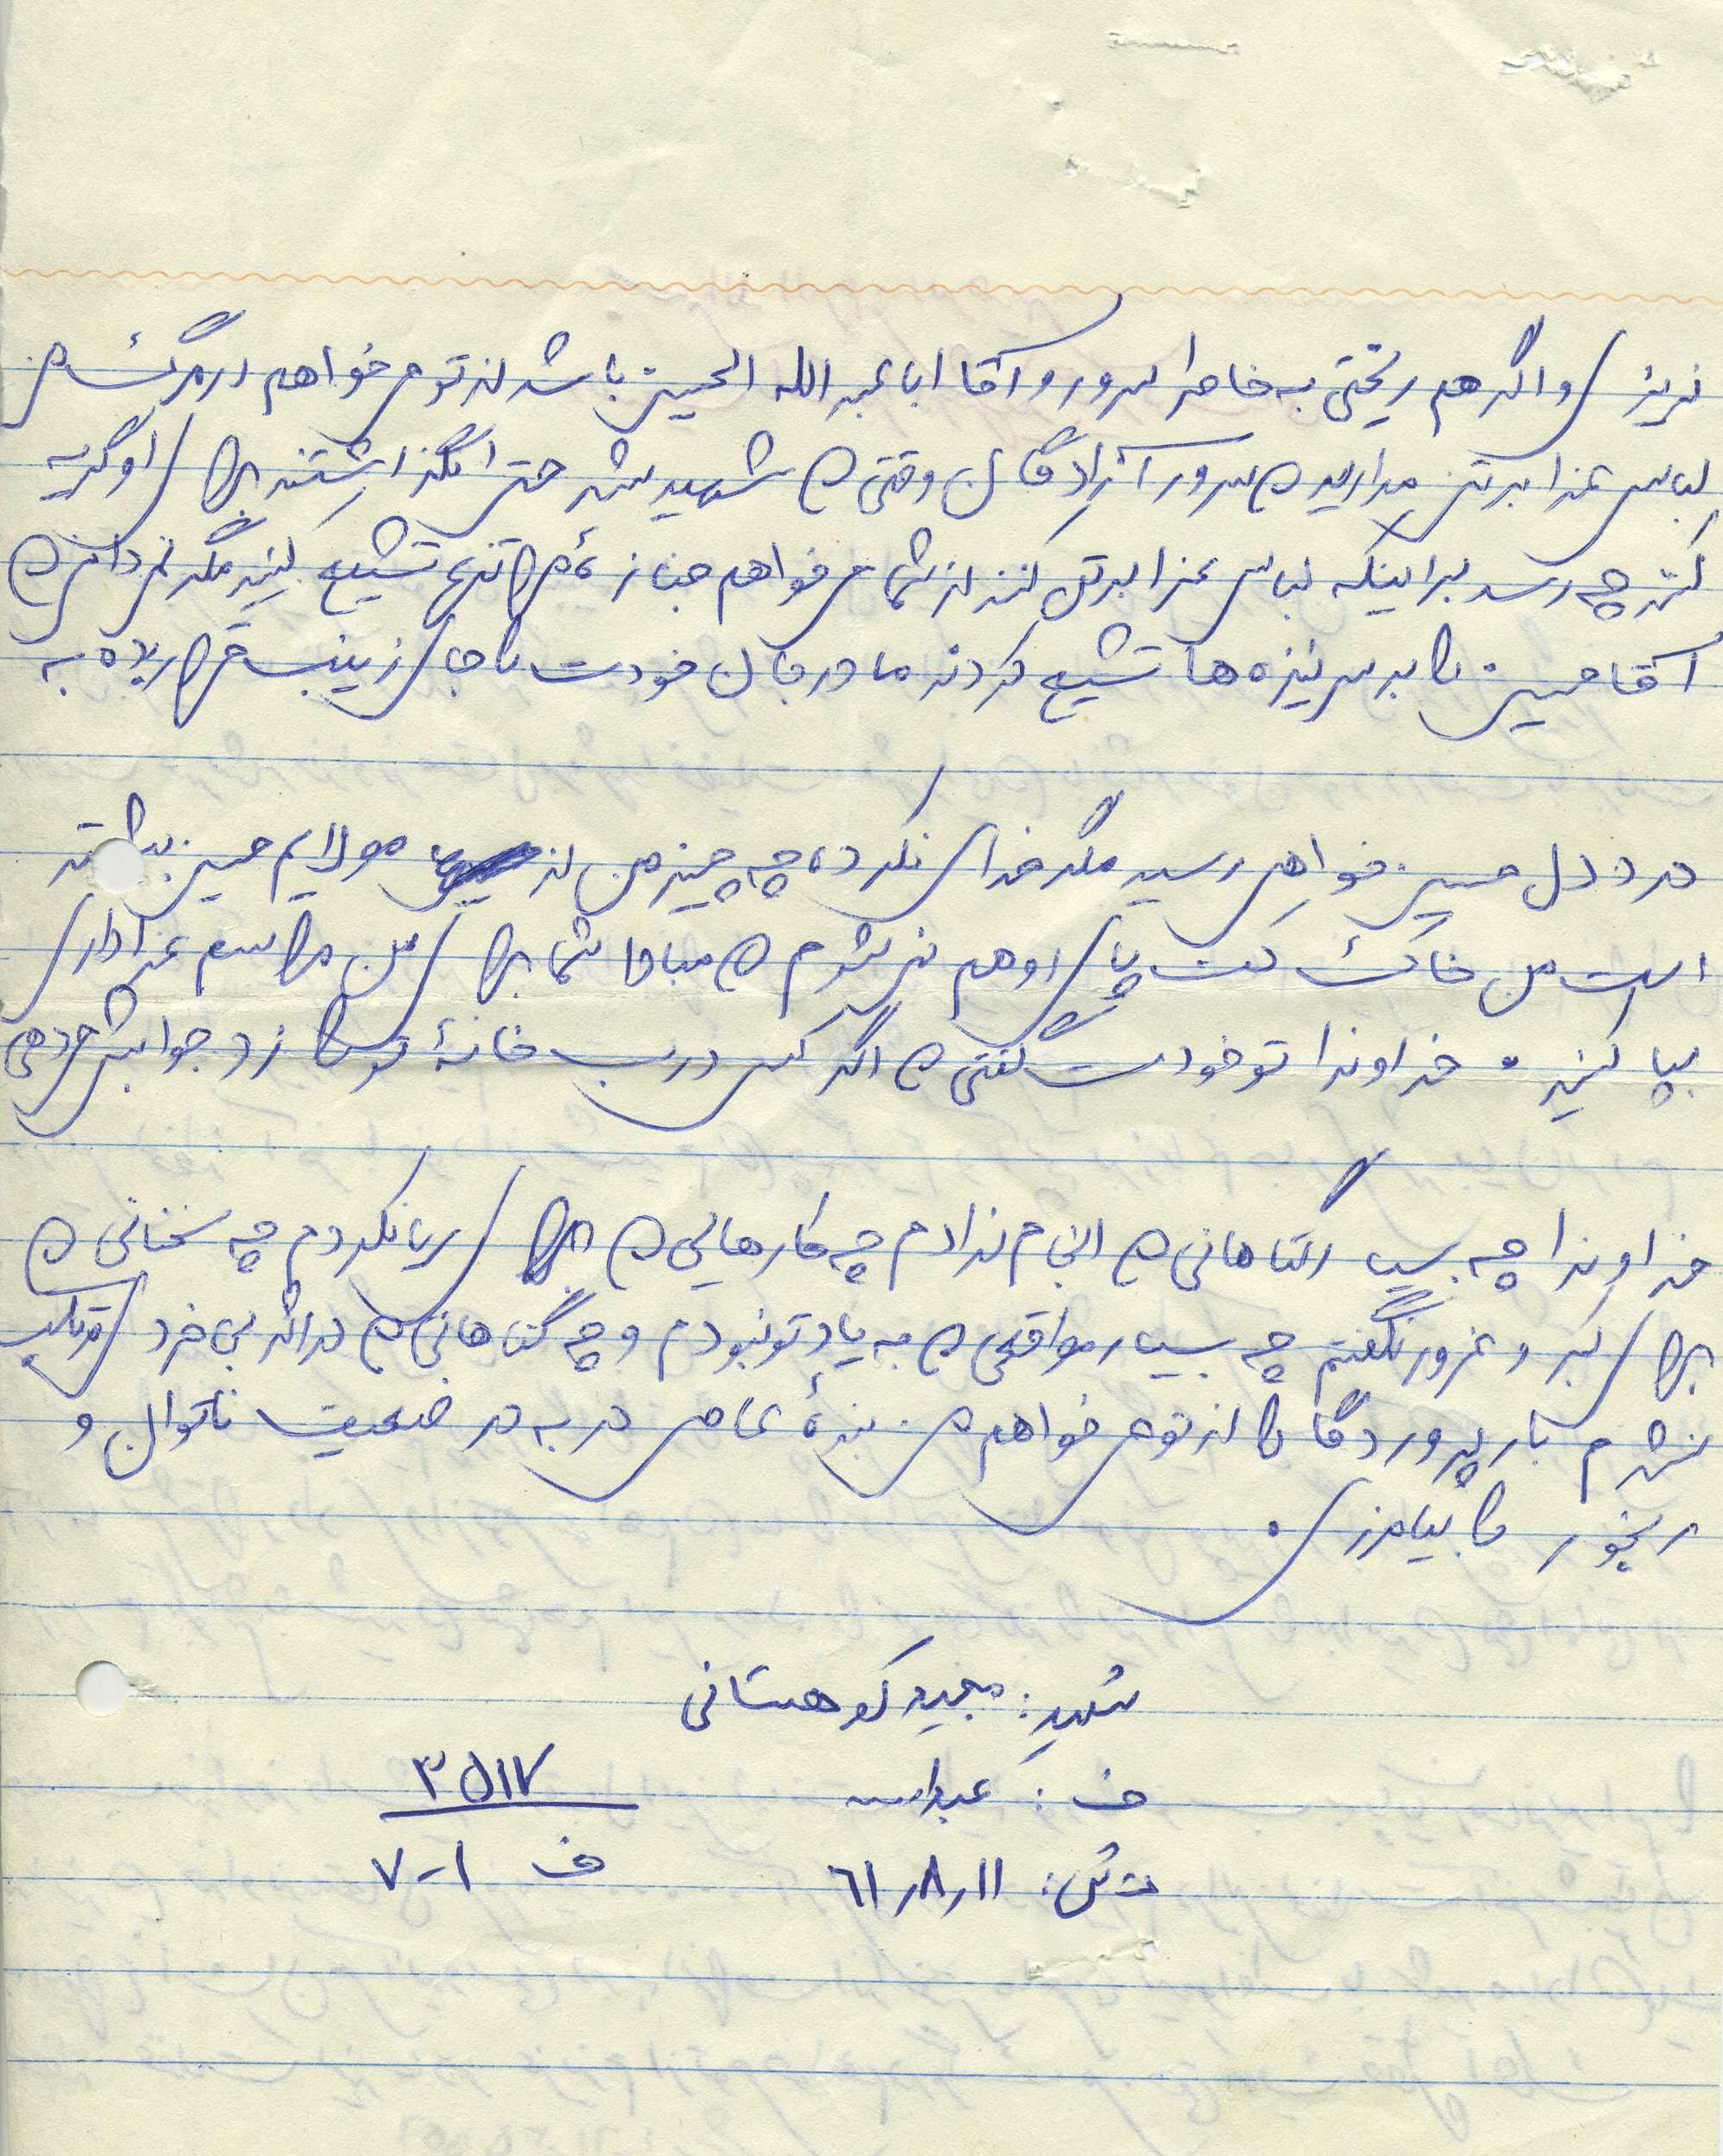 نریز و اگر هم ریختی به خاطر سرور و آقا اباعبدالله الحسین باشد از تو می خواهم در مرگ من
لباس عزا بر تن مدارید که سرور آزادگان وقتی که شهید شد حتی نگذاشتند برای او گریه
کنند چه رسد برا اینکه لباس عزا بر تن کنند از شما می خواهم جنازه ام را تنها تشییع کنید مگر نمی دانی که
آقا حسین را بر سر نیزه ها تشییع کردند مادر جان خودت را جای زینب قرار بده به
درد دل حسین خواهی رسید مگر خدای نکرده چه چیز من از مولایم حسین بیشتر
است من خاک کف پای او هم نمی شوم که مبادا شما برای من مراسم عزاداری
بپا کنید . خداوندا تو خودت گفتی که اگر کسی درب خانهٔ تو را زد جوابش را می دهی
خداوندا چه بسیار گناهانی که انجام ندادم چه کارهایی که برای ریا نکردم چه سخنانی که
برای کبر و غرور نگفتم چه بسیار مواقعی که به یاد تو نبودم و چه گناهانی که در اثر بی خردی مرتکب
نشدم بار پروردگارا از تو می خواهم من بندهٔ عاصی در به در ضعیف ناتوان و
رنجور را بیامرزی .
شهید : مجید کوهستانی
ف : عبداله
ت ش : ۶۱٫۸٫۱۱
۳۵۱۷
ف ۱-۷